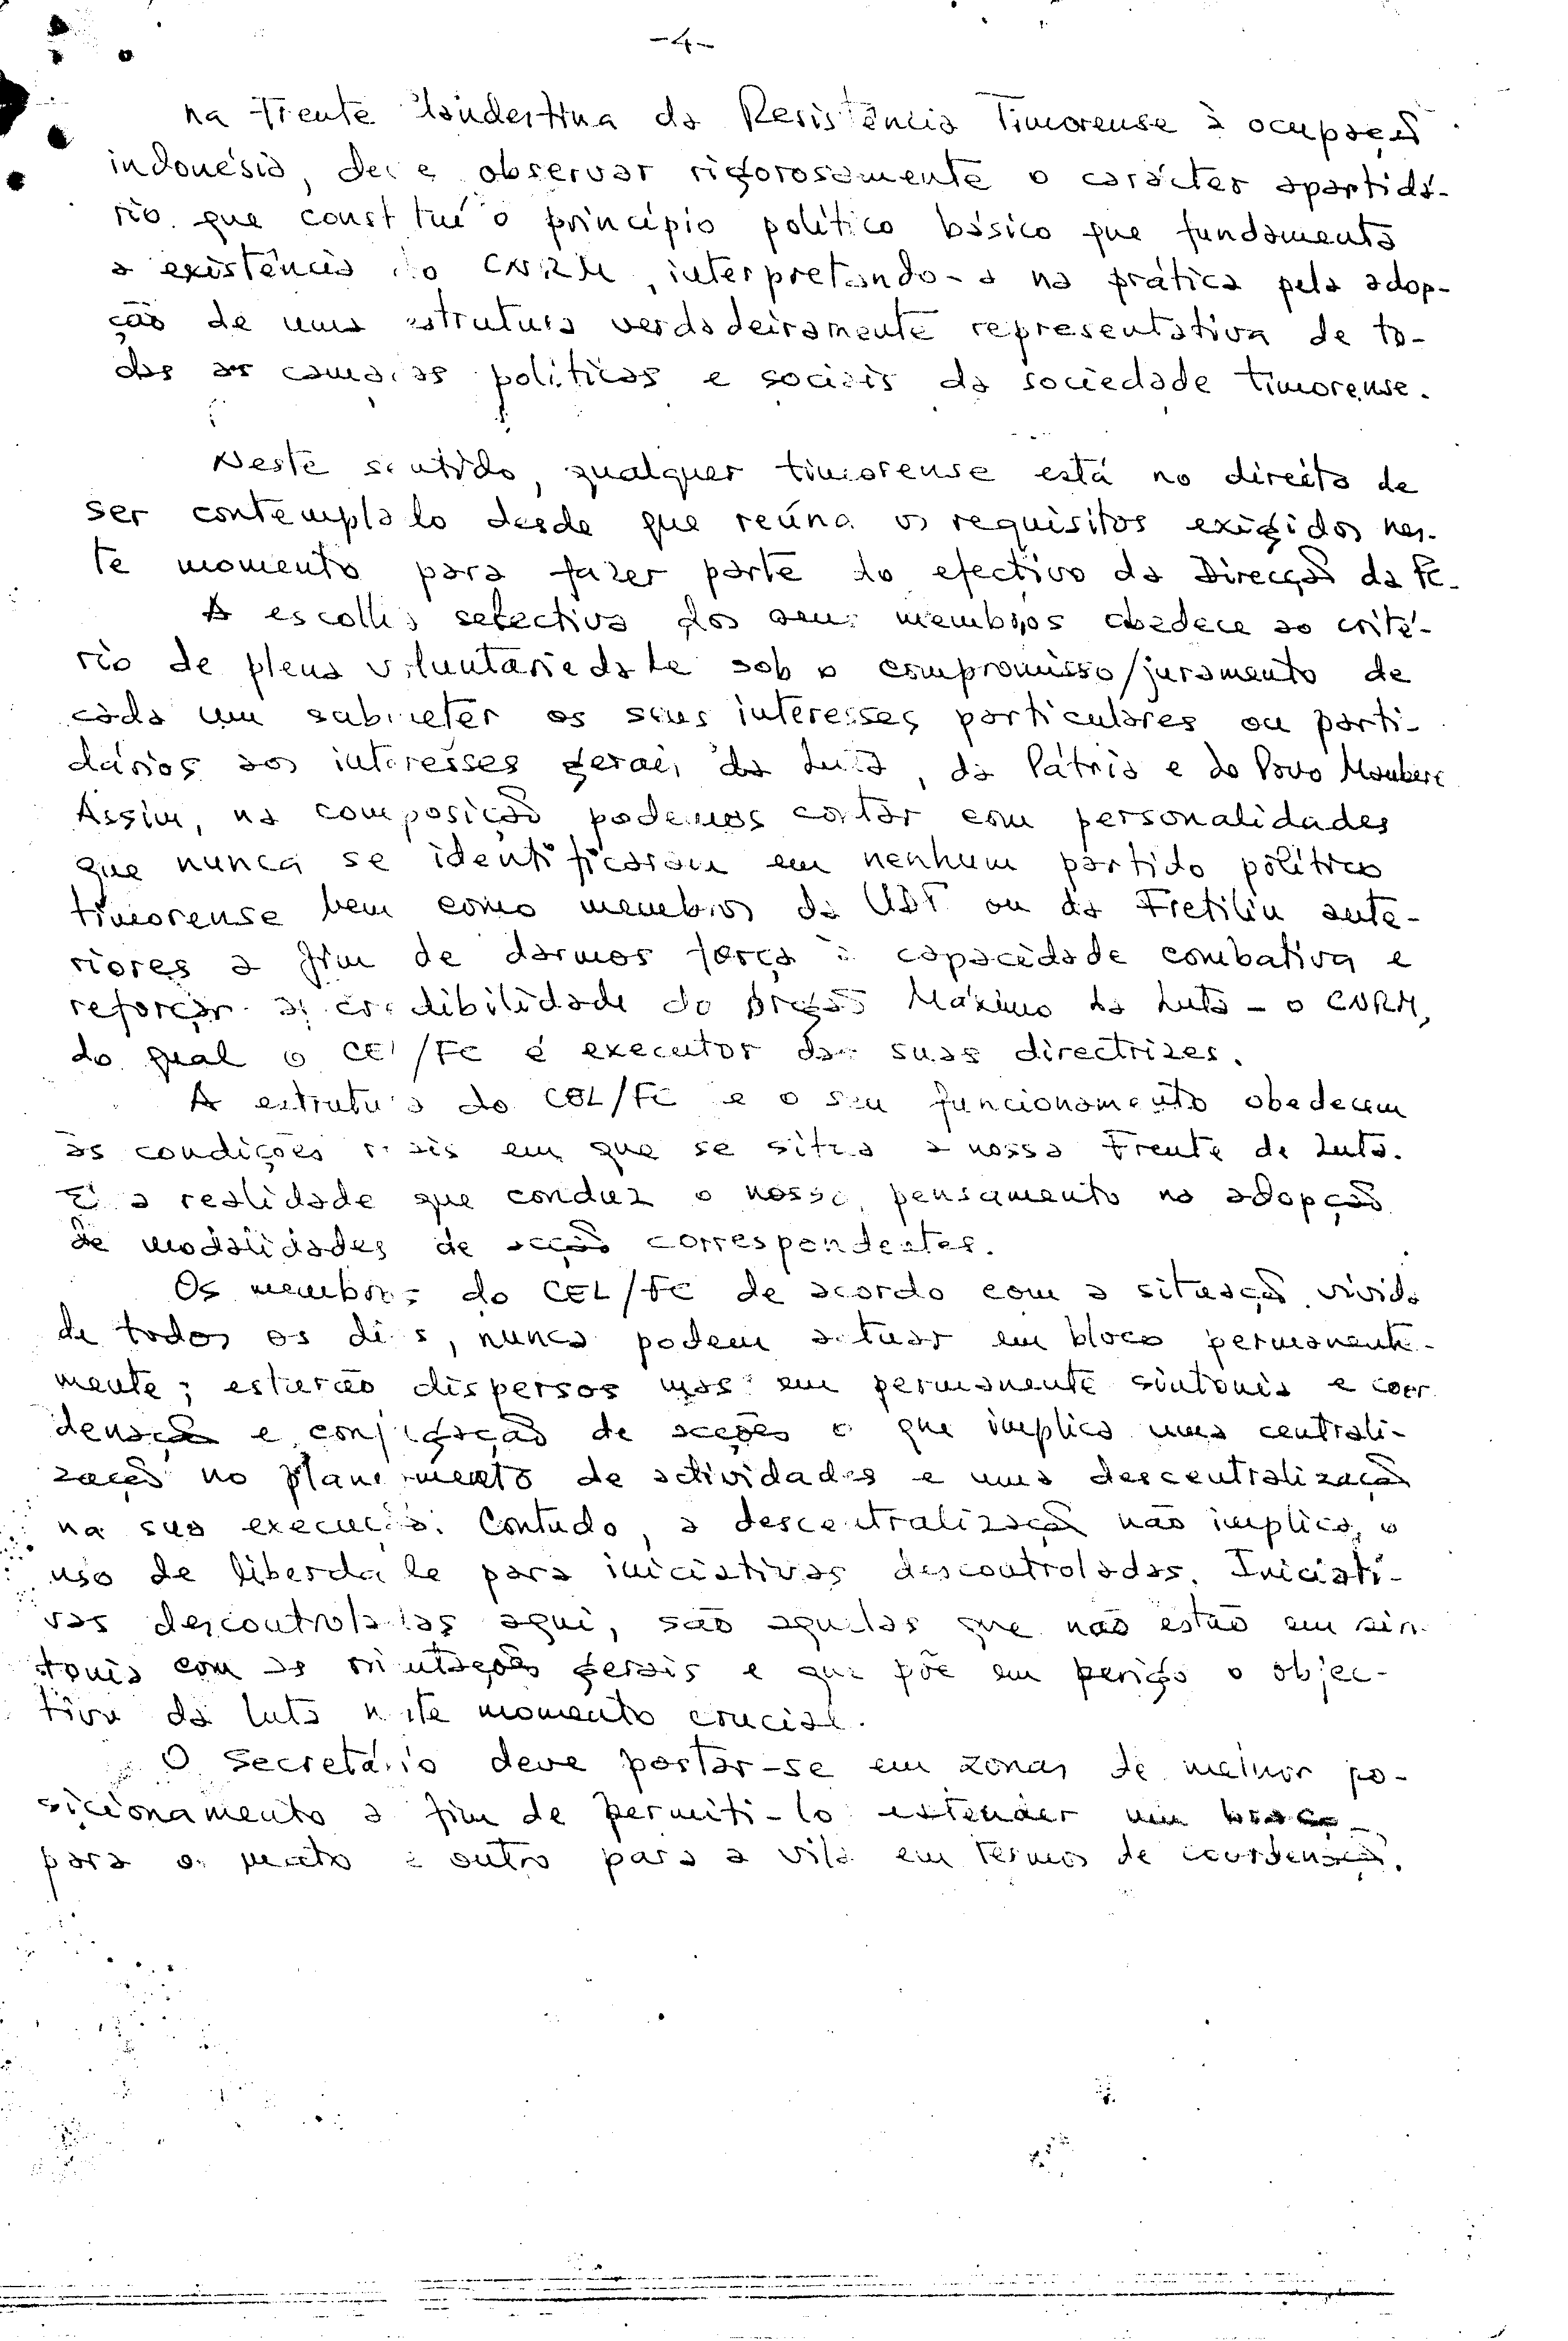 -4-
na Frente Clandestina da Resistência Timorense à ocupação
indonésia, deve observar rigorosamente o carácter apartidá-
rio que constitui o princípio político básico que fundamenta
a existência do CNRM, interpretando-a na prática pela adop-
ção de uma estrutura verdadeiramente representativa de to-
das as camadas políticas e sociais da sociedade timorense.
Neste sentido, qualquer timorense está no direito de
ser contemplado desde que reúna os requisitos exigidos nes-
te momento para fazer parte do efectivo da Direcção da FC.
A escolha selectiva dos seus membros obedece ao crité-
rio de plena voluntariedade sob o compromisso/juramento de
cada um submeter os seus interesses particulares ou parti-
dários aos interesses gerais da Luta, da Pátria e do Povo Maubere
Assim, na composição podemos contar com personalidades
que nunca se identificaram em nenhum partido político
timorense bem como membros da UDT ou da Fretilin ante-
riores a fim de darmos força à capacidade combativa e
reforçar a credibilidade do Órgão Máximo da Luta - o CNRM,
do qual o CEL/FC é executor das suas directrizes.
A estrutura do CEL/FC e o seu funcionamento obedecem
às condições reais em que se situa a nossa Frente de Luta.
É a realidade que conduz o nosso pensamento na adopção
de modalidades de acção correspondentes.
Os membros do CEL/FC de acordo com a situação vivida
de todos os dias, nunca podem actuar em bloco permanente-
mente; estarão dispersos mas em permanente sintonia e coor
denação e conjugação de acções o que implica uma centrali-
zação no planeamento de actividades e uma descentralização
na sua execução. Contudo, a descentralização não implica o
uso de liberdade para iniciativas descontroladas. Iniciati-
vas descontroladas aqui, são aquelas que não estão em sin-
tonia com as orientações gerais e que põe em perigo o objec-
tivo da luta neste momento crucial.
O Secretário deve postar-se em zonas de melhor po-
sicionamento a fim de permiti-lo estender um braço
para o mato e outro para a vila em termos de coordenação.